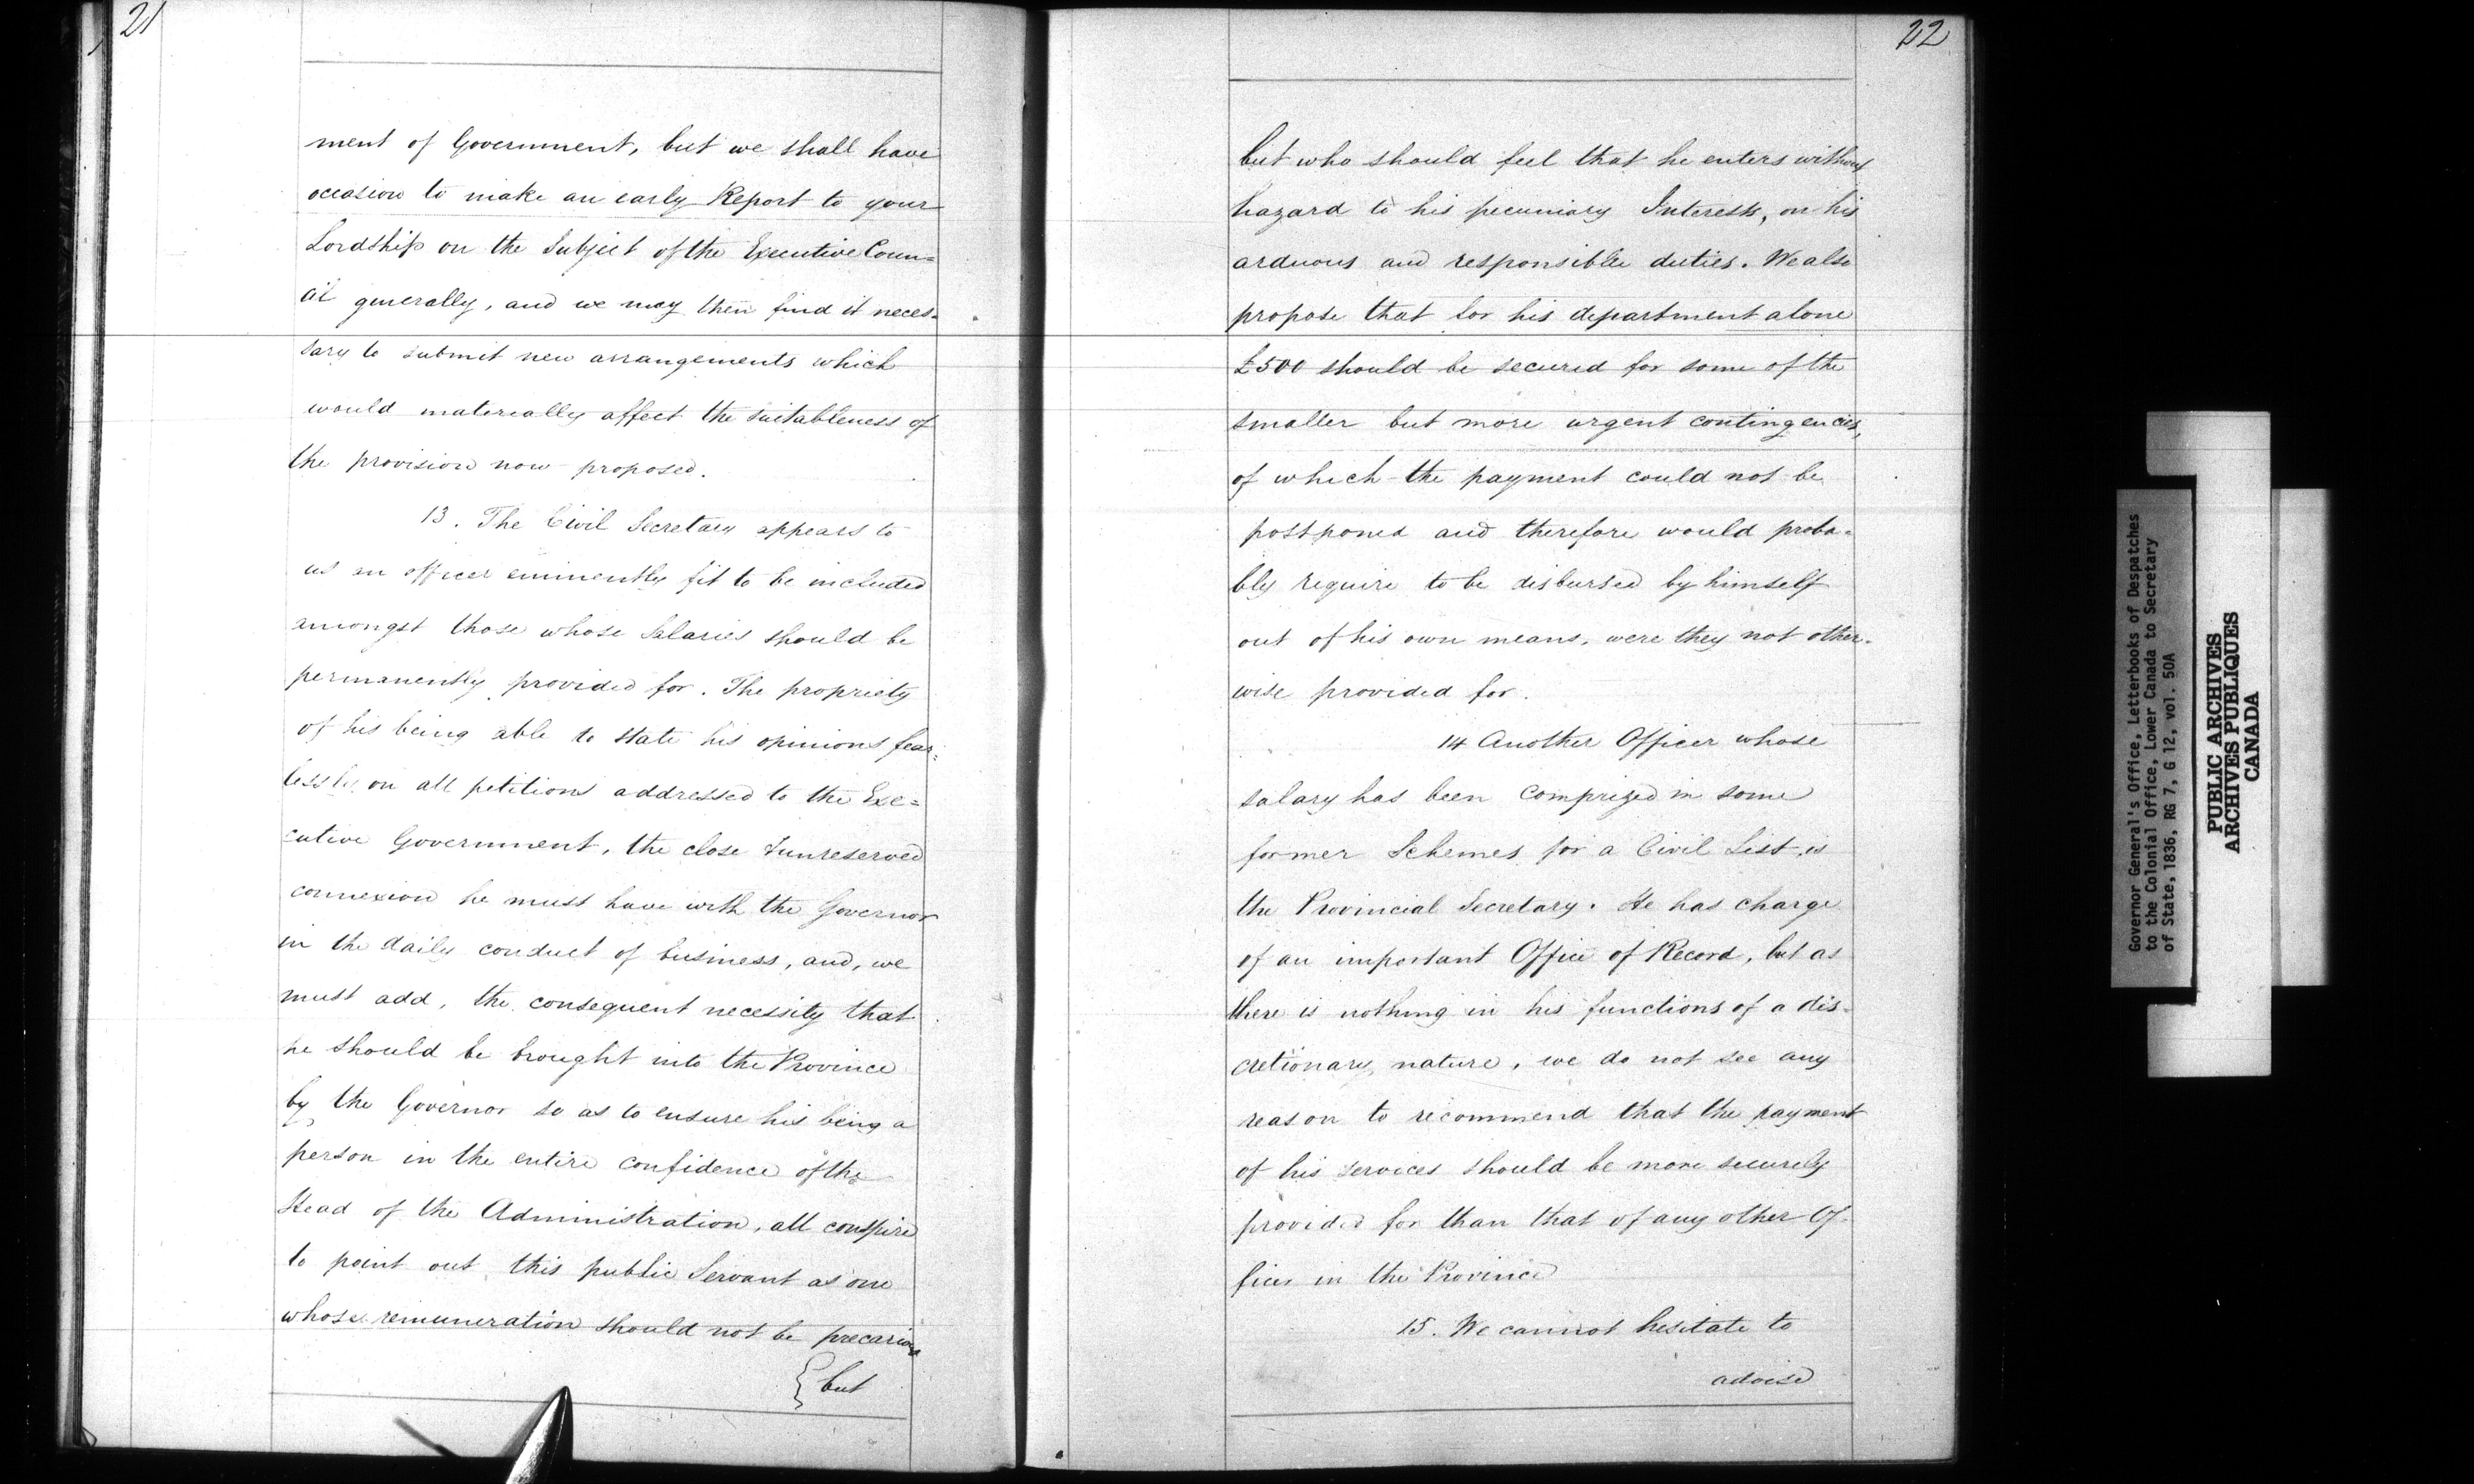 21
ment of Government, but we shall have
occasion to make an early Report to your
Lordship on the Subject of the Executive Coun=
cil generally, and we may then find it neces=
sary to submit new arrangements which
would materially affect the suitableness of
the provision now proposed.
13. The Civil Secretary appears to
us an officer eminently fit to be included
amongst those whose Salaries should be
permanently provided for. The propriety
of his being able to state his opinions fear=
lessly on all petitions addressed to the Exe=
cutive Government, the close & unreserved
connexion he must have with the Governor
in the daily conduct of business, and, we
must add, the consequent necessity that
he should be brought into the Province
by the Governor so as to ensure his being a
person in the entire confidence of the
Head of the Administration, all conspire
to point out this public Servant as one
whose remuneration should not be precarious
but
22
but who should feel that he enters without
hazard to his pecuniary Interests, on his
arduous and responsible duties. We also
propose that for his department alone
£500 should be secured for some of the
smaller but more urgent contingencies,
of which the payment could not be
postponed and therefore would proba=
bly require to be disbursed by himself
out of his own means, were they not other=
wise provided for.
14 Another Officer whose
salary has been comprized in some
former Schemes for a Civil List, is
the Provincial Secretary. He has charge
of an important Office of Record, but as
there is nothing in his functions of a dis=
cretionary nature, we do not see any
reason to recommend that the payment
of his services should be more securely
provided for than that of any other Of=
ficer in the Province
15. We cannot hesitate to
advise
Governor General's Office, Letterbooks of Despatches
to the Colonial Office, Lower Canada to Secretary
of State, 1836, RG 7, G 12, vol. 50A
PUBLIC ARCHIVES
ARCHIVES PUBLIQUES
CANADA